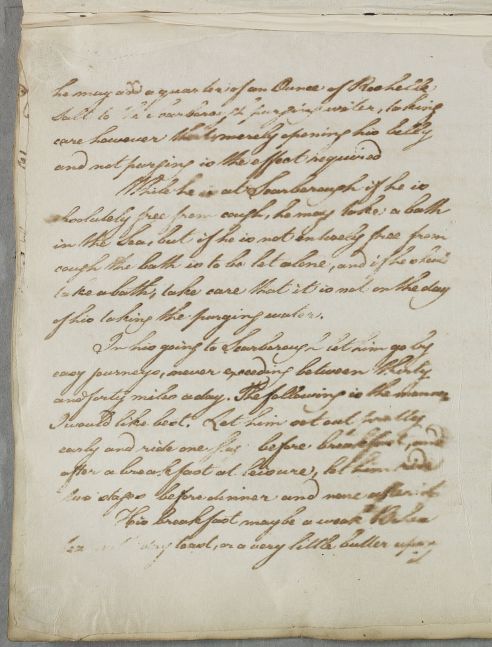 he may add a quarter of an Ounce of Rochelle
Salt to the Scarborough purging water, taking
care however that merely opening his belly
and not purging is the effect required
While he is at Scarborough if he is
absolutely free from cough, he may take a bath
in the Sea, but if he is not entirely free from
cough the bath is to be let alone, and if he should
take a bath, take care that it is not on the day
of his taking the purging water.
In his going to Scarborough let him go by
easy journeys, never exceeding between thirty
and forty miles a day. The following is the manner
I would like best. Let him set out
early and ride one before breakfast, and
after a breakfast at leisure, let him ride
two stages before dinner and none after it
His breakfast may be a weak
dry toast, or a very little butter upon